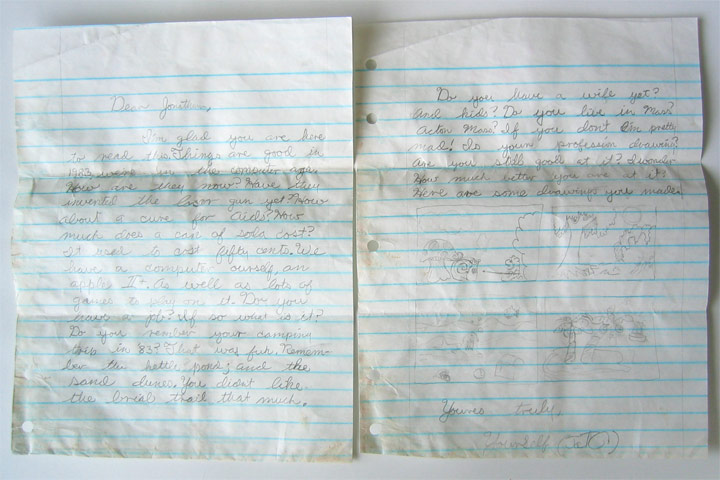 Dear Jonathan,
I'm glad you are here
to read this. Things are good in
1983, were in the computer age.
How are they now? Have they
invented the laser gun yet? How
about a cure for Aids? How
much does a can of soda cost?
It used to cost fifty cents. We
have a computer ourself, an
apple II+. As well as lots of
games to play on it. Do you
have a job? If so what is it?
Do you remember your camping
trip in '83? That was fun. Remem-
ber the kettle pond, and the
sand dunes. You didnt like
the trail that much.
Do you have a wife yet?
And kids? Do you live in Mass?
Acton Mass? If you dont I'm pretty
mad! Is youre profession drawing?
Are you still good at it? I wonder
How much better you are at it?
Here are some drawings you made.
Youres truly,
Yourself